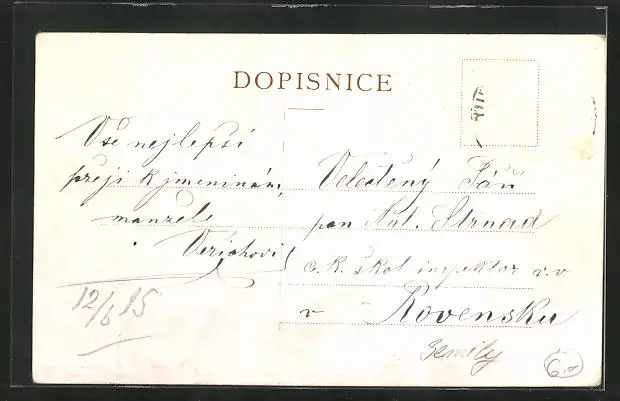 DOPISNICE
Vše nejlepší
přejí k jmeninám,
manželé
Verichovi
12/6 15
Velectěný Pán
pan Ant. Strnad
c. k. škol inspektor v. v
v Rovensku
Semily